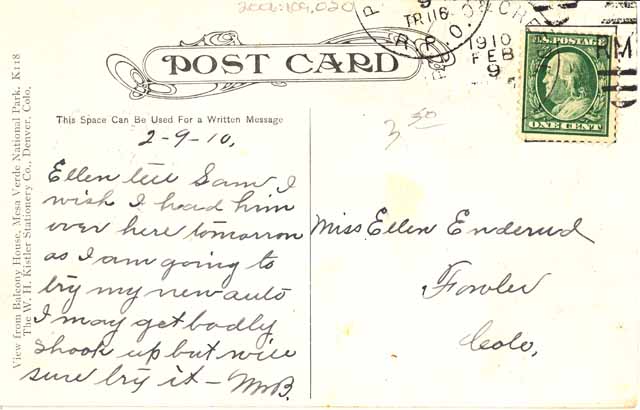 2001.109.020
TR 116
R.P.O.
1910
FEB
9
PM
U.S. POSTAGE
ONE CENT
POST CARD
This Space Can Be Used For a Written Message
3 50
2-9-10,
Ellen tell Sam I
wish I head him
over here tomorrow
as I am going to
try my new auto
I may get badly
shook up but will
sure try it –
Miss Ellen Enderud
Fowler
Colo,
View from Balcony House, Mesa Verde National Park. K118
The W. H. Kistler Stationery Co., Denver, Colo.